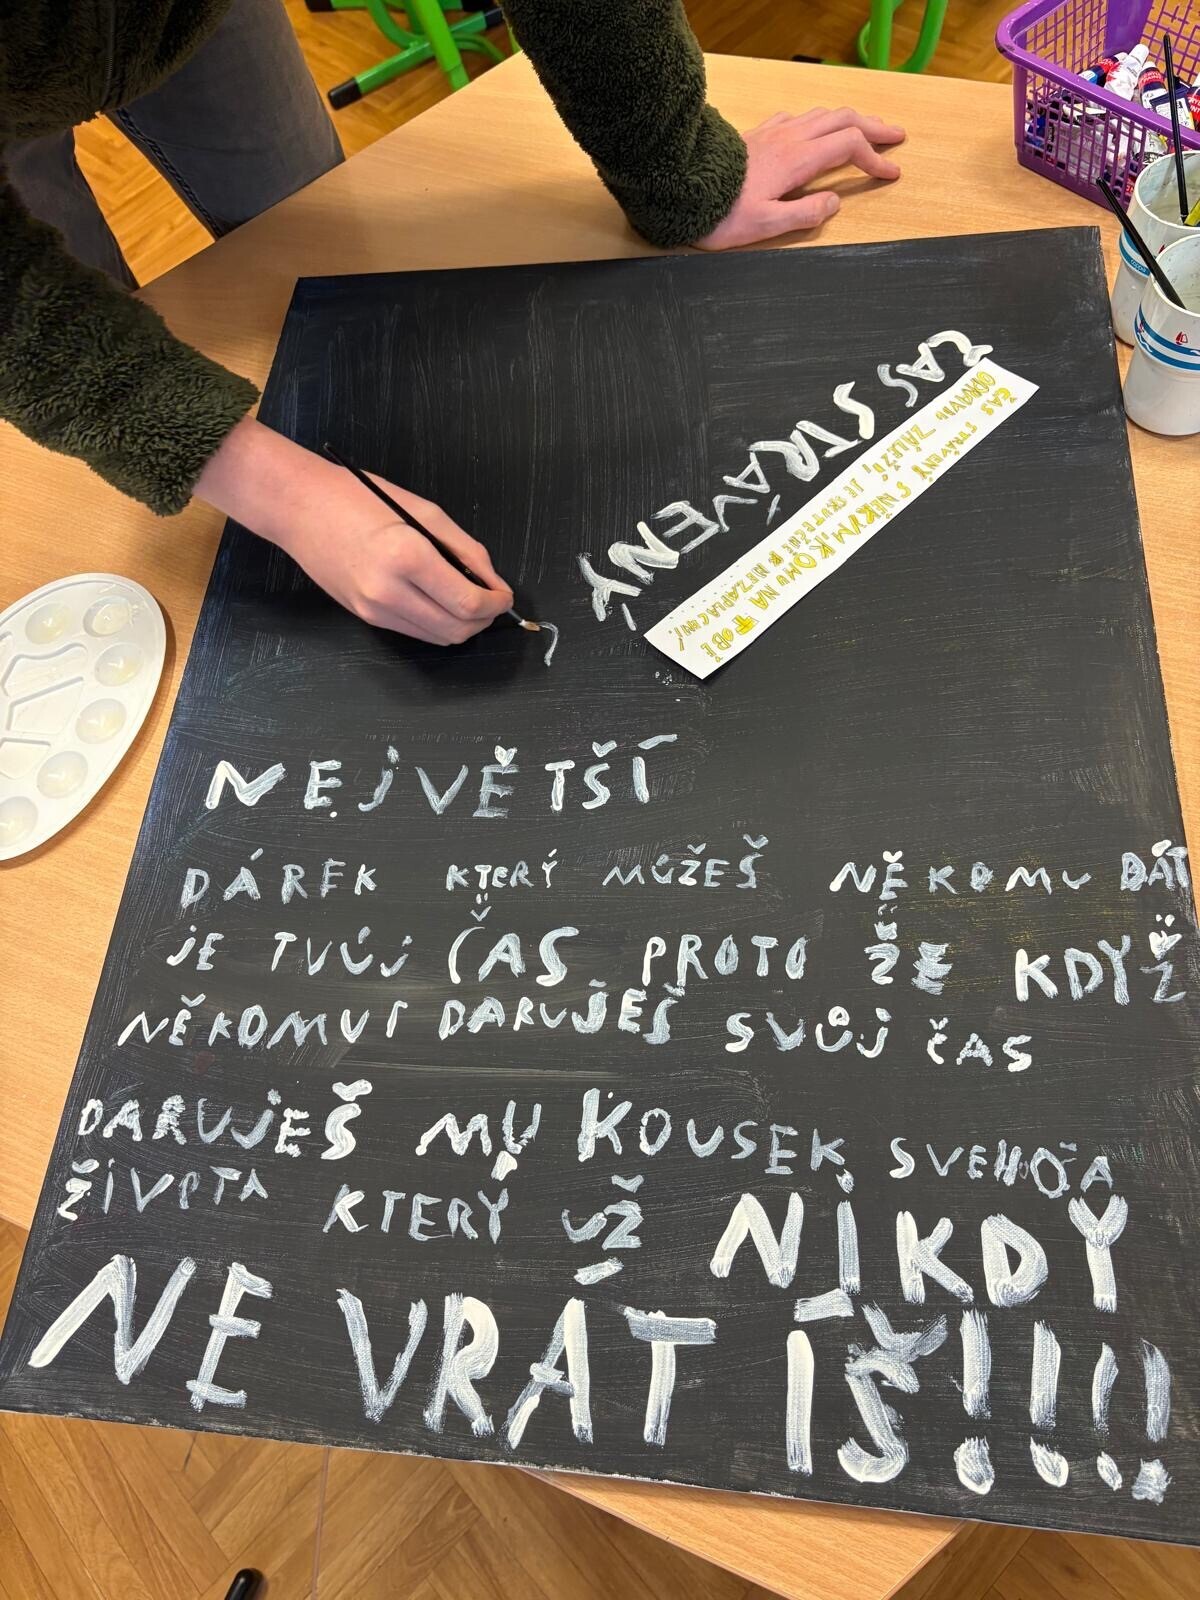 ČAS STRÁVENÝ
ČAS STRÁVENÝ S NĚKÝM, KOMU NA TOBĚ
OPRAVDU ZÁLEŽÍ, JE SKUTEČNĚ K NEZAPLACENÍ!
NEJVĚTŠÍ
DÁREK KTERÝ MŮŽEŠ NĚKOMU DÁT
JE TVŮJ ČAS PROTO ŽE KDYŽ
NĚKOMUT DARUJEŠ SVŮJ ČAS
DARUJEŠ MU KOUSEK SVEHOA
ŽIVOTA KTERÝ UŽ NIKDY
NE VRÁTÍŠ!!!!